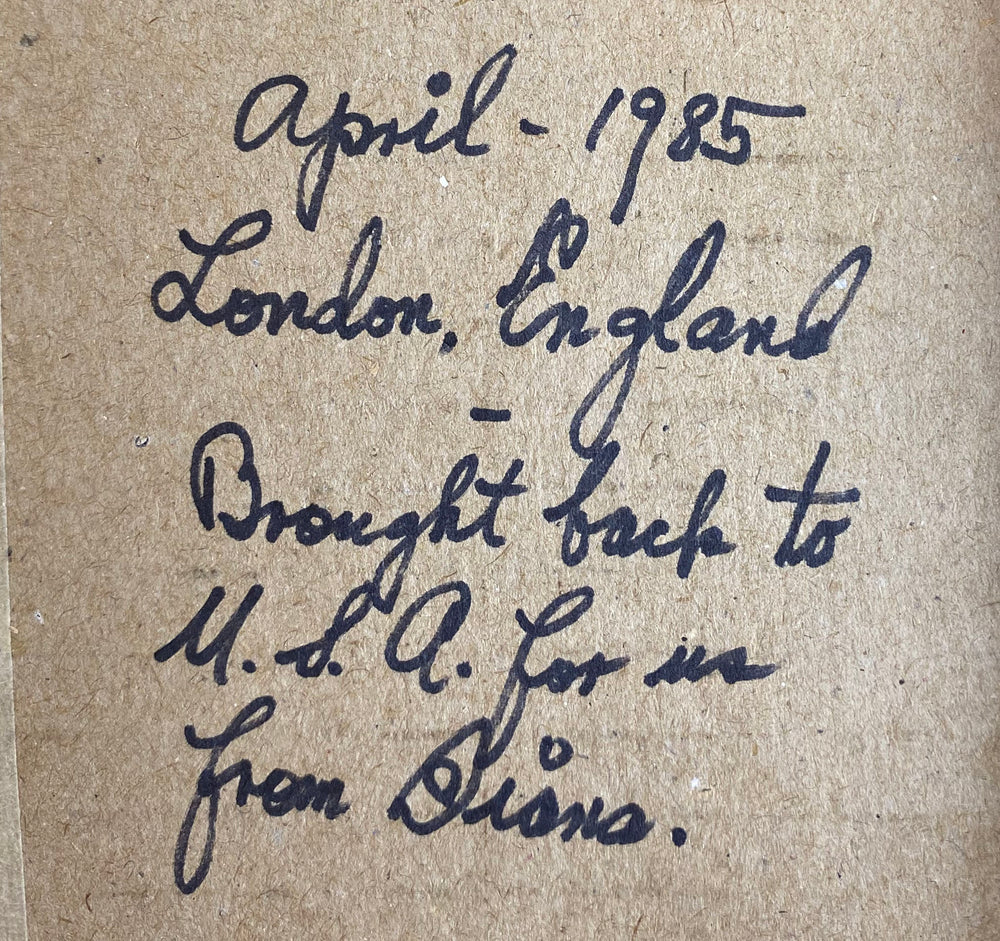 April - 1985
London, England
-
Brought back to
U.S.A. for us
from Diana.